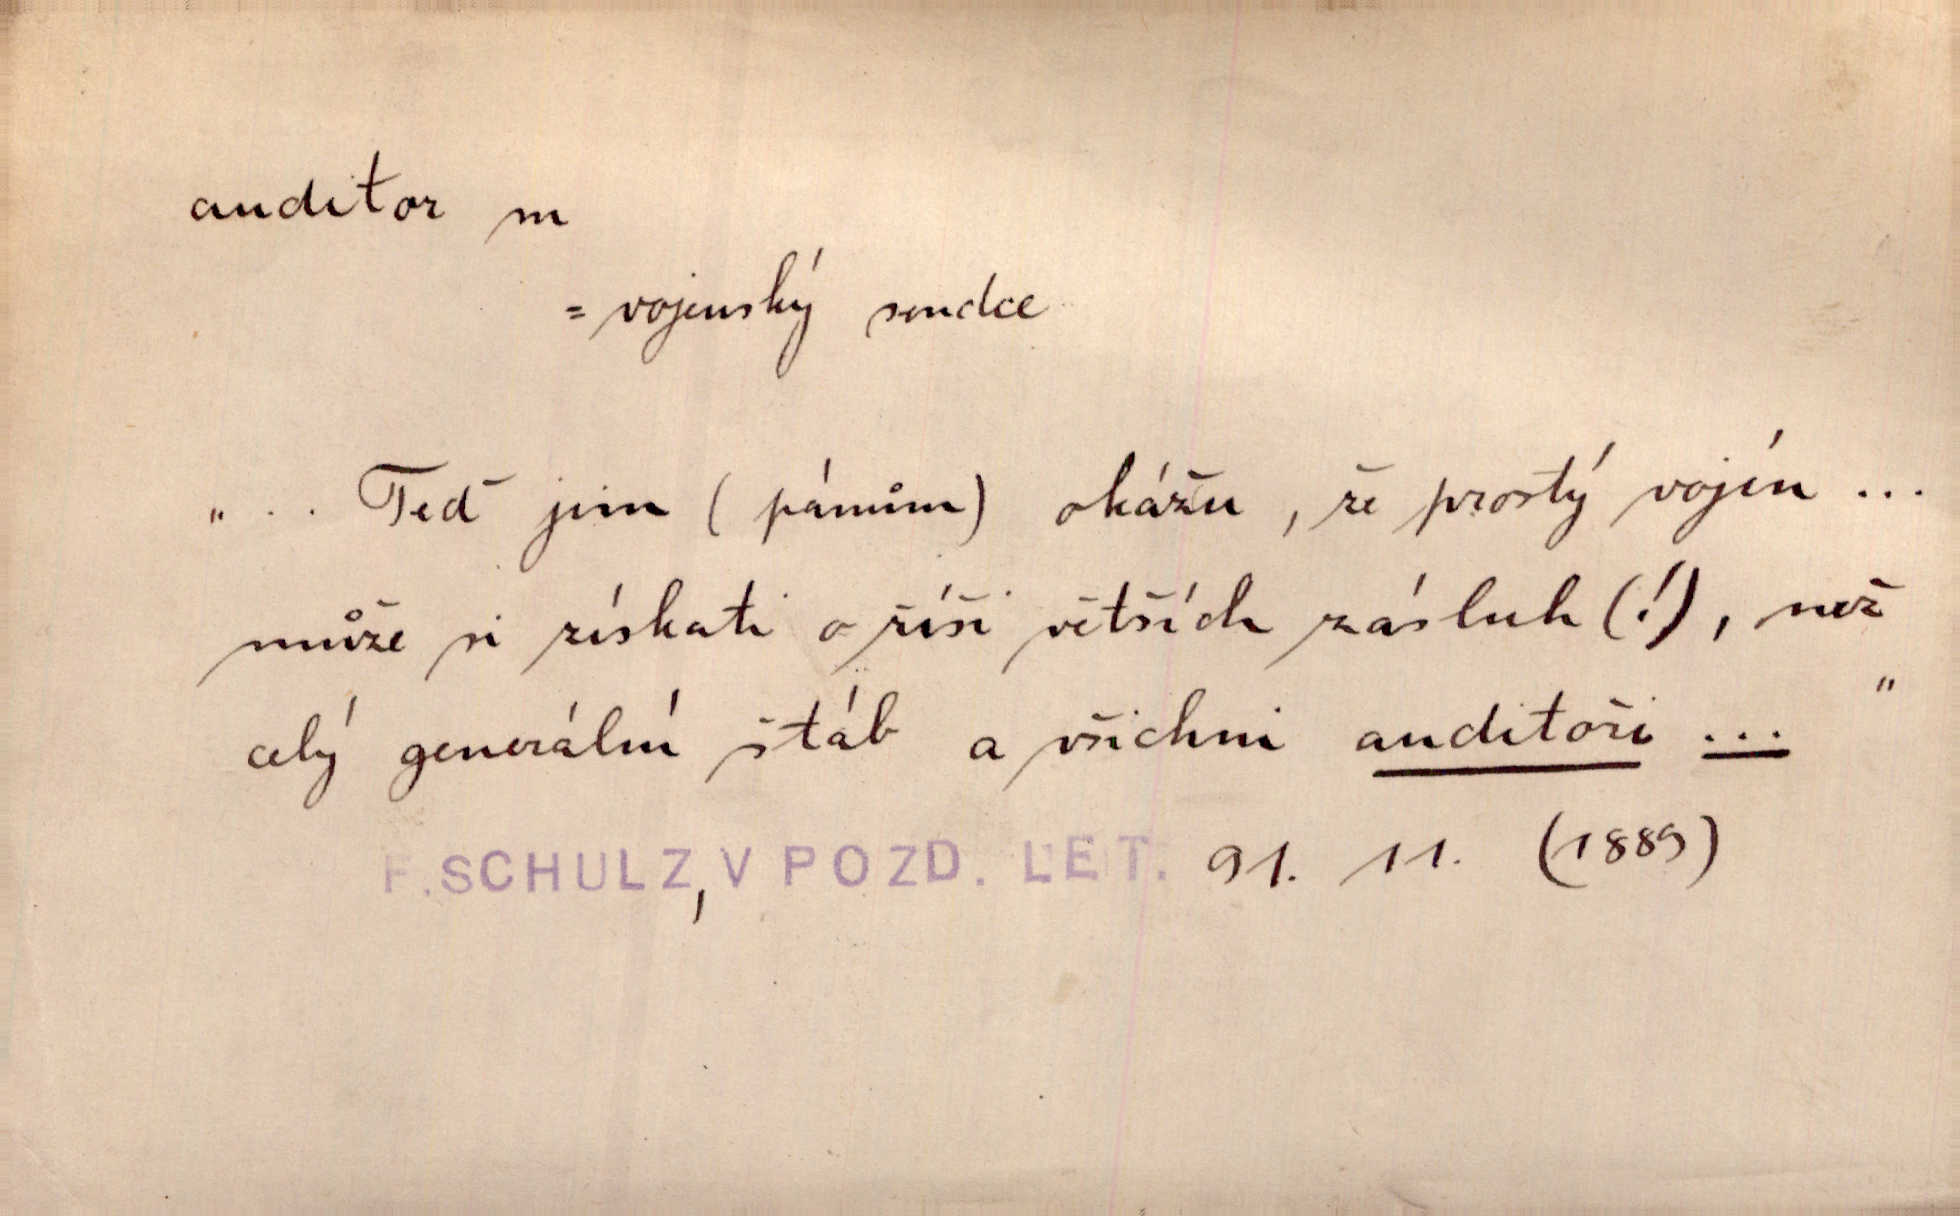 auditor m
= vojenský soudce
" . . Teď jim (pánům) okážu, že prostý vojín ...
může si získati o říši větších zásluh (!), než
celý generální štáb a všichni auditoři ... "
F. SCHULZ, V POZD. LET. 91. 11. (1889)